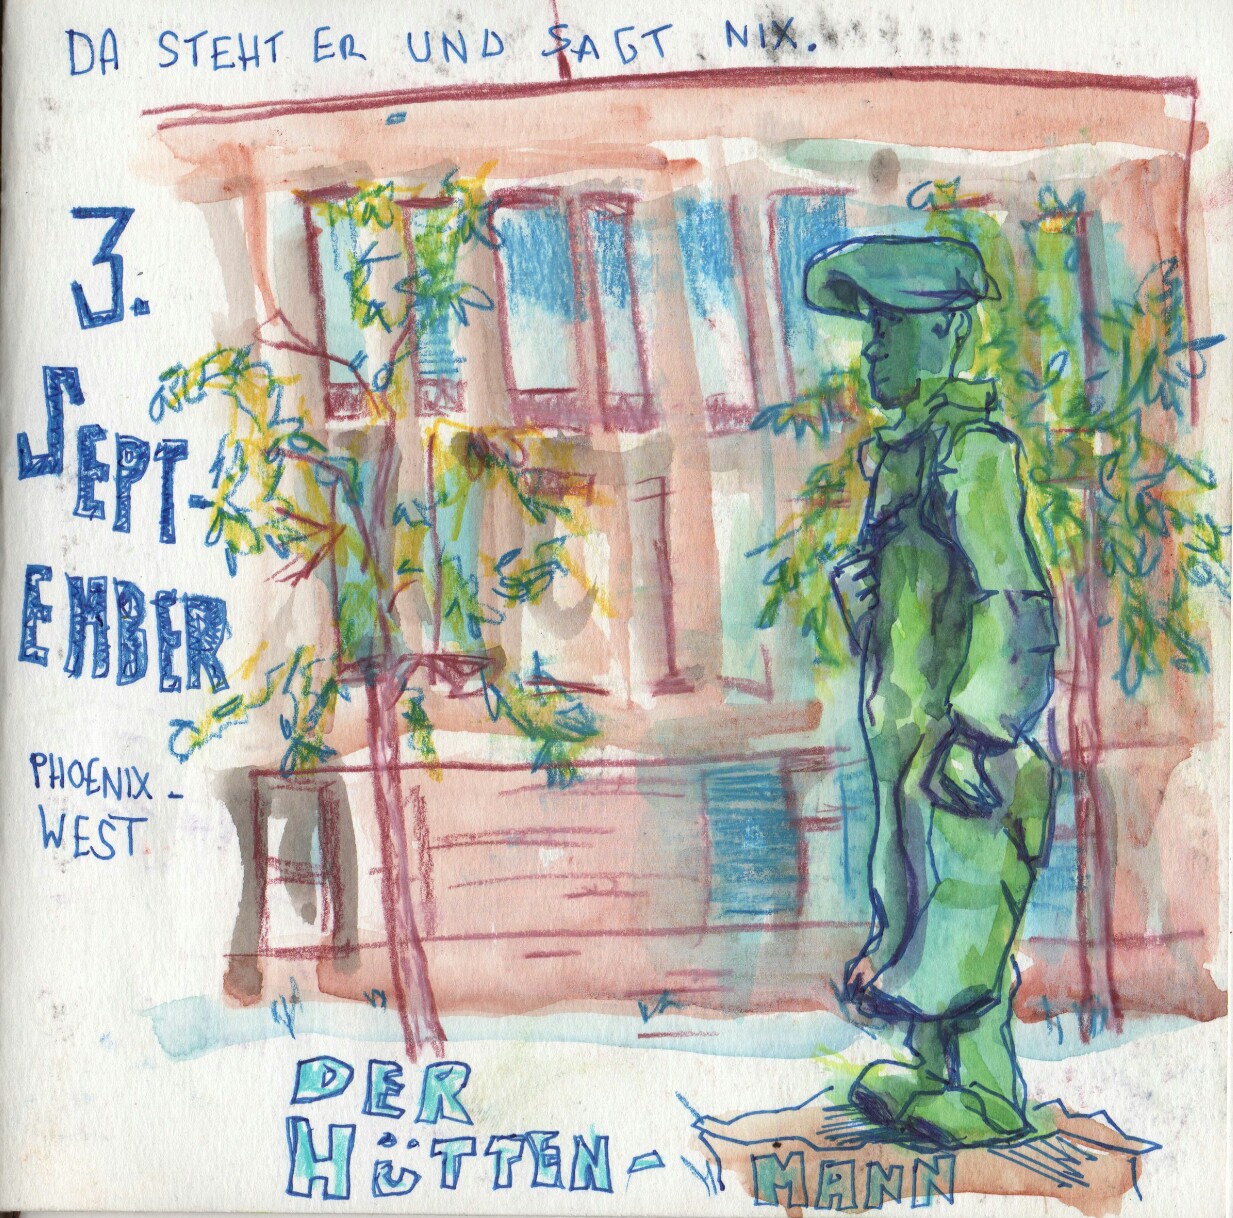 DA STEHT ER UND SAGT NIX.
3.
SEPT-
EMBER
PHOENIX-
WEST
DER
HÜTTEN-
MANN